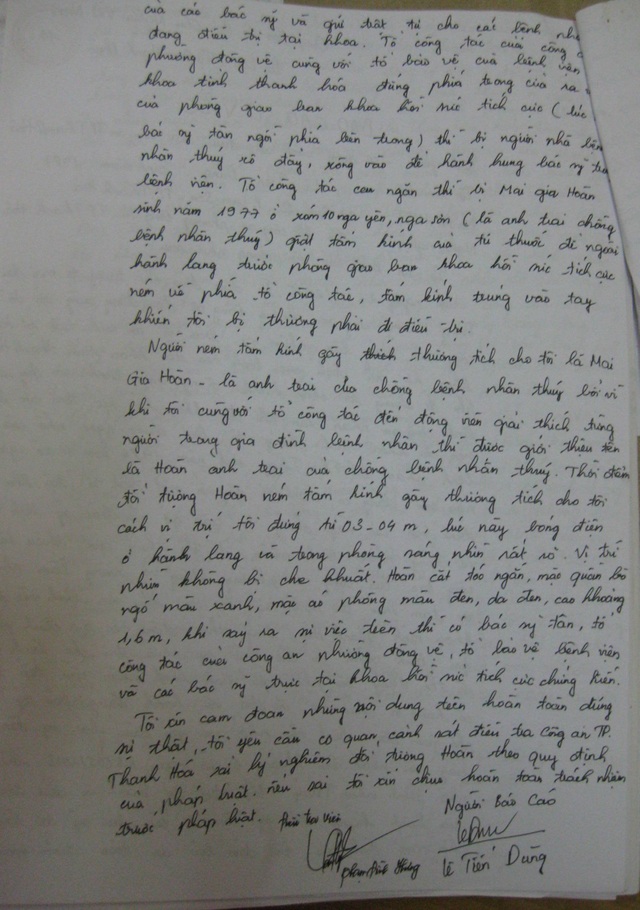 của các bác sỹ và gửi trật tự cho các bệnh nhân
đang điều trị tại khoa. Tổ công tác của công an
phường đông vệ cùng với tổ bảo vệ của bệnh viện
khoa tỉnh thanh hóa đứng phía trong cửa ra
của phòng giao ban khoa hồi sức tích cực (lúc
bác sỹ tân ngồi phía bên trong) thì bị người nhà bệnh
nhân thuý xô đẩy, xông vào để hành hung bác sỹ
bệnh viện. Tổ công tác can ngăn thì bị Mai Gia Hoàn
sinh năm 1977 ở xóm 10 nga yên, nga sơn (là anh trai chồng
bệnh nhân thuý) giật tấm kính của tủ thuốc để ngoài
hành lang trước phòng giao ban khoa hồi sức tích cực
ném về phía tổ công tác, tấm kính trúng vào tay
khiến tôi bị thương phải đi điều trị.
Người ném tấm kính gây thương tích cho tôi là Mai
Gia Hoàn - là anh trai của chồng bệnh nhân thuý bởi vì
khi tôi cùng với tổ công tác đến động viên giải thích từng
người trong gia đình bệnh nhân thì được giới thiệu tên
là Hoàn anh trai của chồng bệnh nhân thuý. Thời điểm
đối tượng Hoàn ném tấm kính gây thương tích cho tôi
cách vị trí tôi đứng từ 03-04 m, lúc này bóng điện
ở hành lang và trong phòng sáng nhìn rất rõ. Vị trí
nhìn không bị che khuất. Hoàn cắt tóc ngắn, mặc quần bò
ngố màu xanh, mặc áo phông màu đen, da đen, cao khoảng
1,6 m, khi xảy ra sự việc trên thì có bác sỹ tân, tổ
công tác của công an phường đông vệ, tổ bảo vệ bệnh viện
và các bác sỹ trực tại khoa hồi sức tích cực chứng kiến.
Tôi xin cam đoan những nội dung trên hoàn toàn đúng
sự thật, tôi yêu cầu cơ quan cảnh sát điều tra Công an TP.
Thanh Hoá xử lý nghiêm đối tượng Hoàn theo quy định
của pháp luật. nếu sai tôi xin chịu hoàn toàn trách nhiệm
trước pháp luật.
Người Báo Cáo
Lê Tiến Dũng